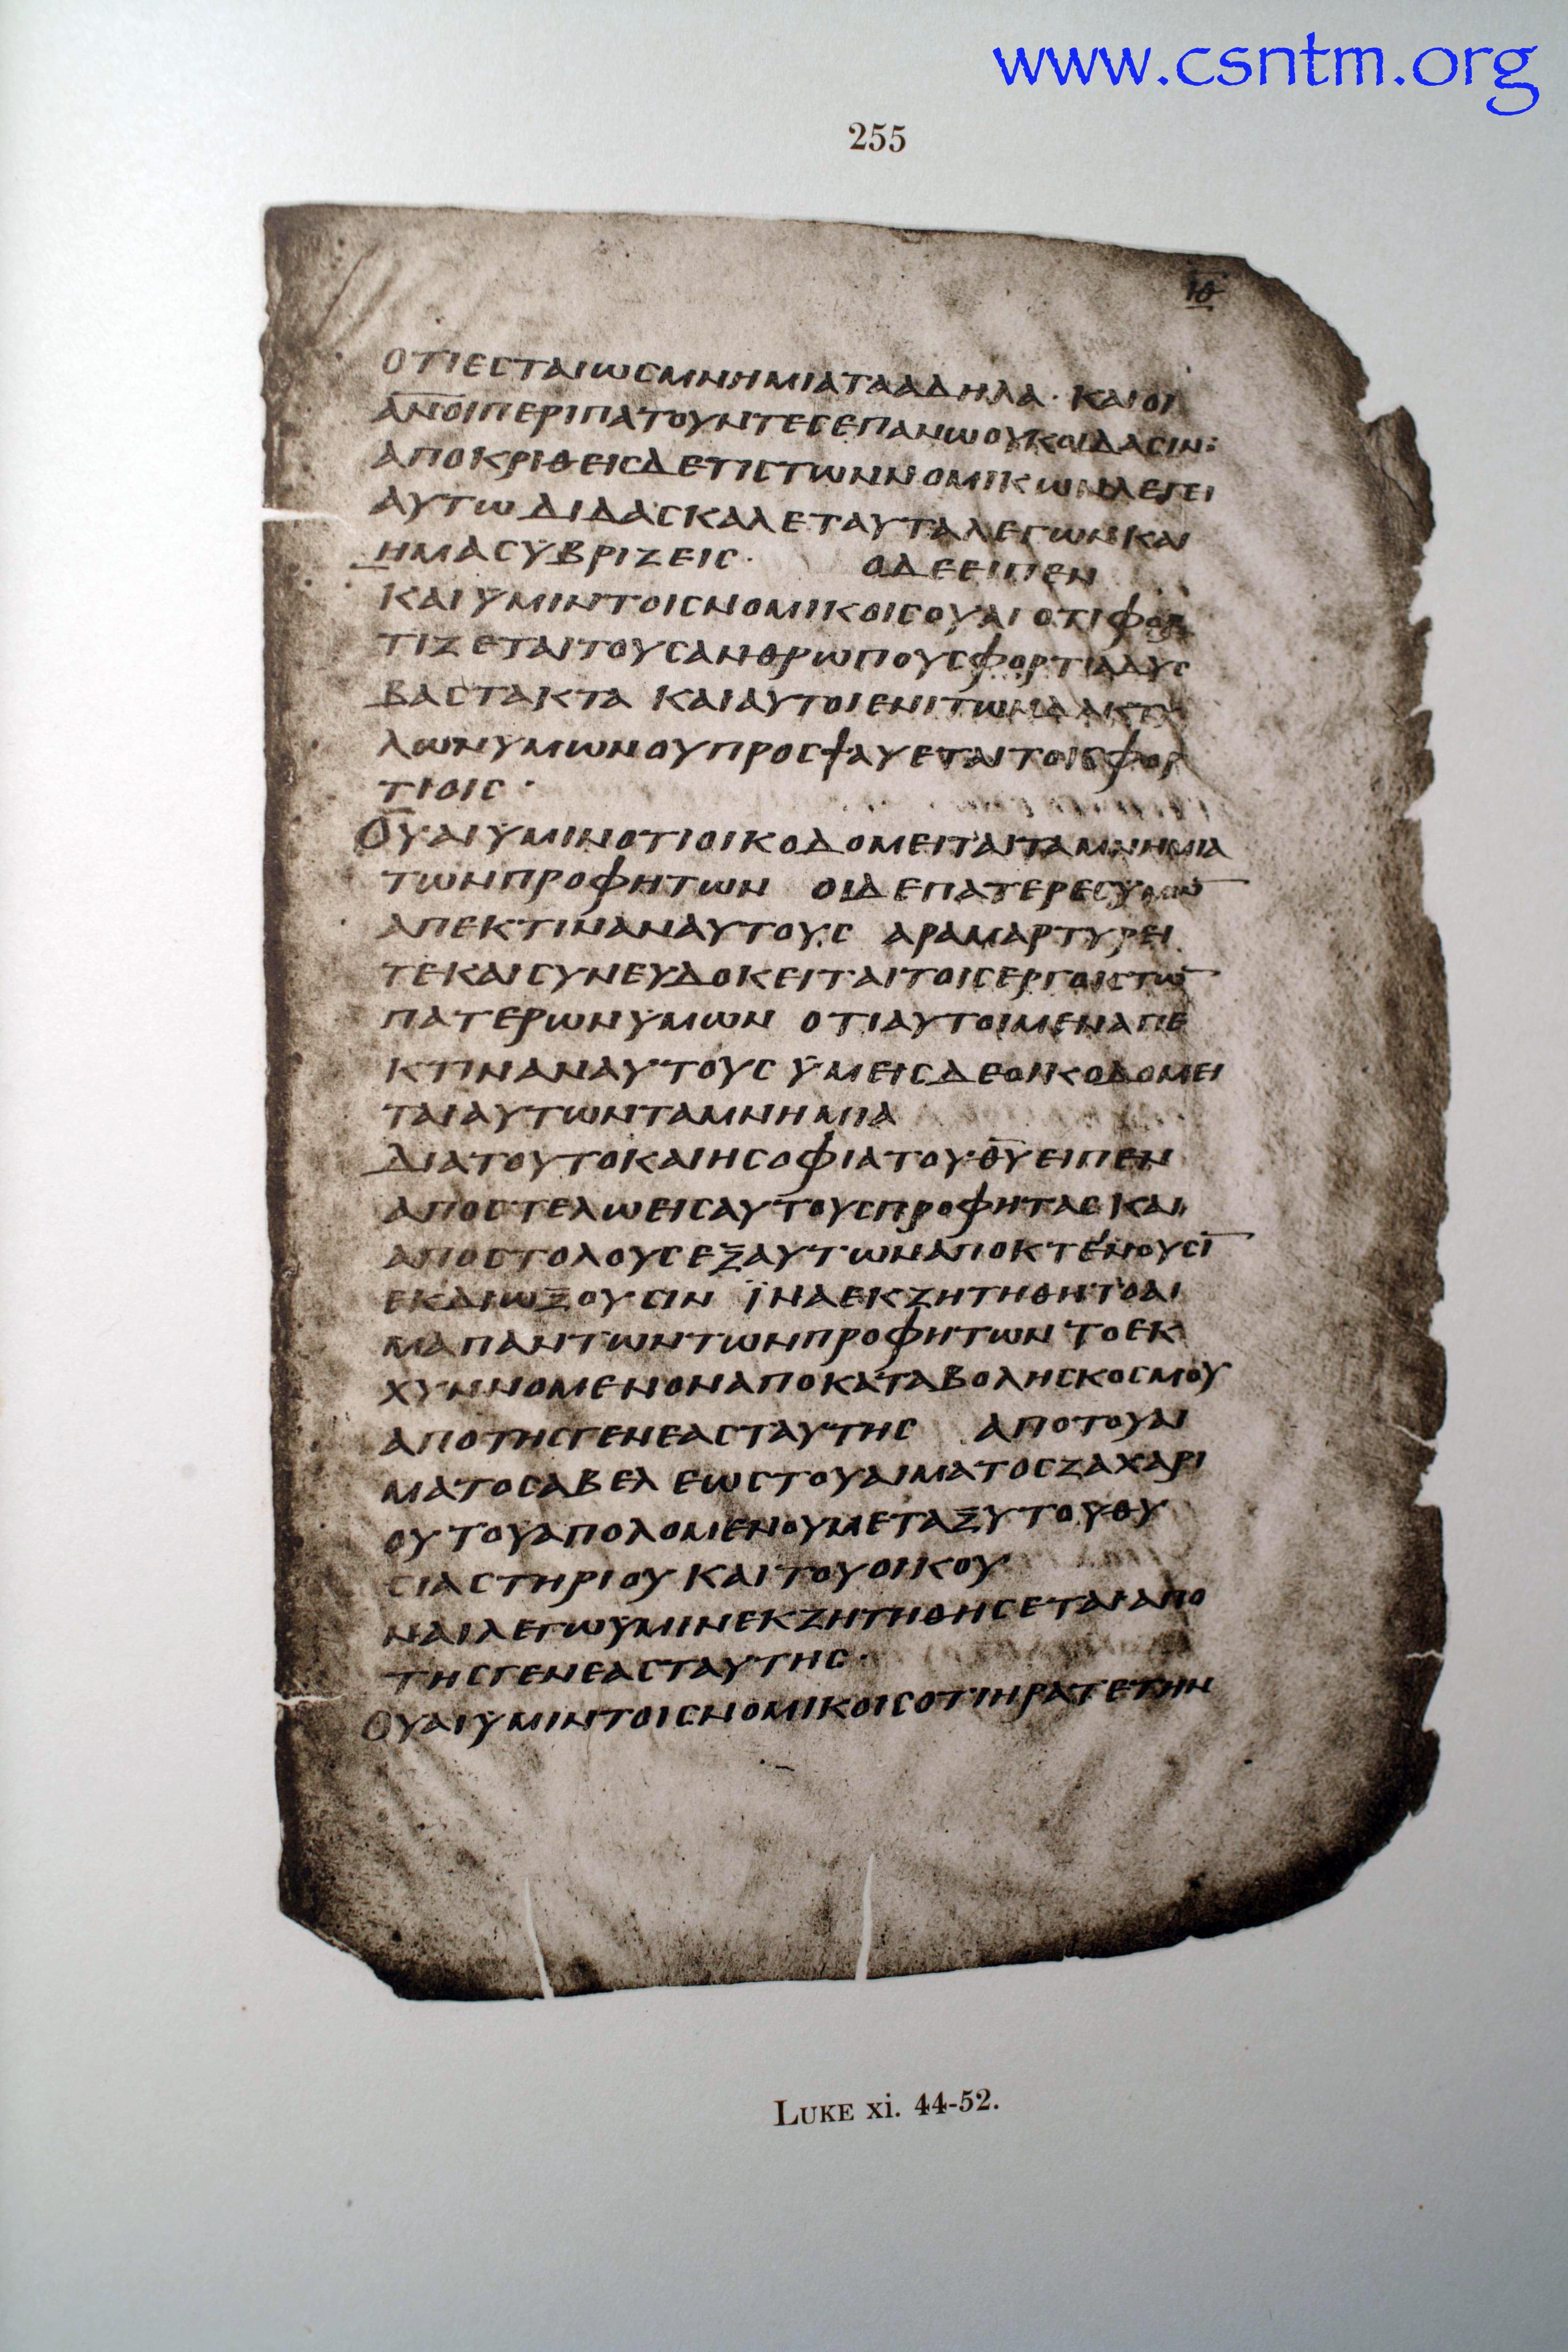 www.csntm.org
255
ΟΤΙΕCΤΑΙωCΜΝΗΜΙΑΤΑΑΔΗΛΑ· ΚΑΙΟΙ
ΑΝ̅Ο̅ΙΠΕΡΙΠΑΤΟΥΝΤΕCΕΠΑΝωΟΥΚΟΙΔΑCΙΝ:
ΑΠΟΚΡΙΘΕΙCΔΕΤΙCΤωΝΝΟΜΙΚωΝΛΕΓΕΙ
ΑΥΤωΔΙΔΑCΚΑΛΕΤΑΥΤΑΛΕΓωΝΚΑΙ
ΗΜΑCΫΒΡΙΖΕΙC· ΟΔΕΕΙΠΕΝ
ΚΑΙΫΜΙΝΤΟΙCΝΟΜΙΚΟΙCΟΥΑΙΟΤΙΦΟΡ
ΤΙΖΕΤΑΙΤΟΥCΑΝΘΡωΠΟΥCΦΟΡΤΙΑΔΥC
ΒΑCΤΑΚΤΑ ΚΑΙΑΥΤΟΙΕΝΙΤωΝΔΑΚΤΥ
ΛωΝΫΜωΝΟΥΠΡΟCΨΑΥΕΤΑΙΤΟΙCΦΟΡ
ΤΙΟΙC·
ΟΥΑΙΫΜΙΝΟΤΙΟΙΚΟΔΟΜΕΙΤΑΙΤΑΜΝΗΜΙΑ
ΤωΝΠΡΟΦΗΤωΝ ΟΙΔΕΠΑΤΕΡΕCΫΜω̅
ΑΠΕΚΤΙΝΑΝΑΥΤΟΥC ΑΡΑΜΑΡΤΥΡΕΙ
ΤΕΚΑΙCΥΝΕΥΔΟΚΕΙΤΑΙΤΟΙCΕΡΓΟΙCΤω̅
ΠΑΤΕΡωΝΫΜωΝ ΟΤΙΑΥΤΟΙΜΕΝΑΠΕ
ΚΤΙΝΑΝΑΥΤΟΥC ΫΜΕΙCΔΕΟΙΚΟΔΟΜΕΙ
ΤΑΙΑΥΤωΝΤΑΜΝΗΜΙΑ
ΔΙΑΤΟΥΤΟΚΑΙΗCΟΦΙΑΤΟΥΘ̅Υ̅ΕΙΠΕΝ
ΑΠΟCΤΕΛωΕΙCΑΥΤΟΥCΠΡΟΦΗΤΑCΚΑΙ
ΑΠΟCΤΟΛΟΥCΕΞΑΥΤωΝΑΠΟΚΤΕΝΟΥCΙ̅
ΕΚΔΙωΞΟΥCΙΝ ΪΝΑΕΚΖΗΤΗΘΗΤΟΑΙ
ΜΑΠΑΝΤωΝΤωΝΠΡΟΦΗΤωΝΤΟΕΚ
ΧΥΝΝΟΜΕΝΟΝΑΠΟΚΑΤΑΒΟΛΗCΚΟCΜΟΥ
ΑΠΟΤΗCΓΕΝΕΑCΤΑΥΤΗC ΑΠΟΤΟΥΑΙ
ΜΑΤΟCΑΒΕΛ ΕωCΤΟΥΑΙΜΑΤΟCΖΑΧΑΡΙ
ΟΥΤΟΥΑΠΟΛΟΜΕΝΟΥΜΕΤΑΞΥΤΟΥΘΥ
CΙΑCΤΗΡΙΟΥΚΑΙΤΟΥΟΙΚΟΥ
ΝΑΙΛΕΓωΫΜΙΝΕΚΖΗΤΗΘΗCΕΤΑΙΑΠΟ
ΤΗCΓΕΝΕΑCΤΑΥΤΗC·
ΟΥΑΙΫΜΙΝΤΟΙCΝΟΜΙΚΟΙCΟΤΙΗΡΑΤΕΤΗΝ
LUKE xi. 44-52.